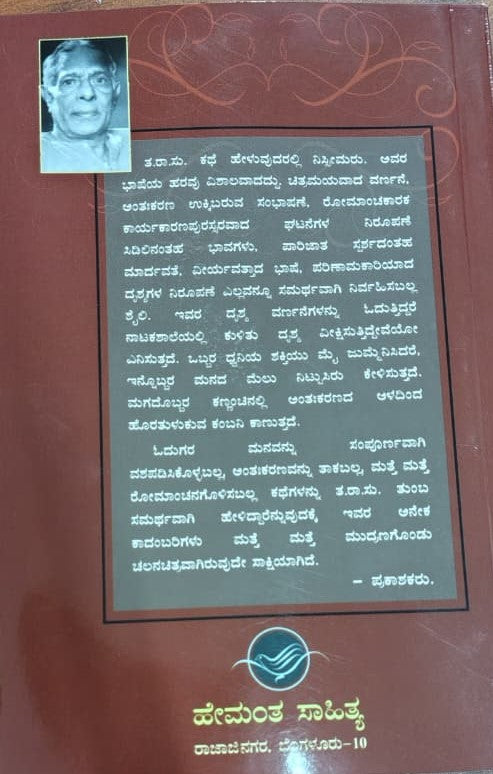 ತ.ರಾ.ಸು. ಕಥೆ ಹೇಳುವುದರಲ್ಲಿ ನಿಸ್ಸೀಮರು. ಅವರ
ಭಾಷೆಯ ಹರವು ವಿಶಾಲವಾದದ್ದು. ಚಿತ್ರಮಯವಾದ ವರ್ಣನೆ,
ಅಂತಃಕರಣ ಉಕ್ಕಿಬರುವ ಸಂಭಾಷಣೆ, ರೋಮಾಂಚಕಾರಕ
ಕಾರ್ಯಕಾರಣಪುರಸ್ಸರವಾದ ಘಟನೆಗಳ ನಿರೂಪಣೆ
ಸಿಡಿಲಿನಂತಹ ಭಾವಗಳು, ಪಾರಿಜಾತ ಸ್ಪರ್ಶದಂತಹ
ಮಾರ್ದವತೆ, ವೀರ್ಯವತ್ತಾದ ಭಾಷೆ, ಪರಿಣಾಮಕಾರಿಯಾದ
ದೃಶ್ಯಗಳ ನಿರೂಪಣೆ ಎಲ್ಲವನ್ನೂ ಸಮರ್ಥವಾಗಿ ನಿರ್ವಹಿಸಬಲ್ಲ
ಶೈಲಿ. ಇವರ ದೃಶ್ಯ ವರ್ಣನೆಗಳನ್ನು ಓದುತ್ತಿದ್ದರೆ
ನಾಟಕಶಾಲೆಯಲ್ಲಿ ಕುಳಿತು ದೃಶ್ಯ ವೀಕ್ಷಿಸುತ್ತಿದ್ದೇವೆಯೋ
ಎನಿಸುತ್ತದೆ. ಒಬ್ಬರ ಧ್ವನಿಯ ಶಕ್ತಿಯು ಮೈ ಜುಮ್ಮೆನಿಸಿದರೆ,
ಇನ್ನೊಬ್ಬರ ಮನದ ಮೆಲು ನಿಟ್ಟುಸಿರು ಕೇಳಿಸುತ್ತದೆ.
ಮಗದೊಬ್ಬರ ಕಣ್ಣಂಚಿನಲ್ಲಿ ಅಂತಃಕರಣದ ಆಳದಿಂದ
ಹೊರತುಳುಕುವ ಕಂಬನಿ ಕಾಣುತ್ತದೆ.
ಓದುಗರ ಮನವನ್ನು ಸಂಪೂರ್ಣವಾಗಿ
ವಶಪಡಿಸಿಕೊಳ್ಳಬಲ್ಲ, ಅಂತಃಕರಣವನ್ನು ತಾಕಬಲ್ಲ, ಮತ್ತೆ ಮತ್ತೆ
ರೋಮಾಂಚನಗೊಳಿಸಬಲ್ಲ ಕಥೆಗಳನ್ನು ತ.ರಾ.ಸು. ತುಂಬ
ಸಮರ್ಥವಾಗಿ ಹೇಳಿದ್ದಾರೆನ್ನುವುದಕ್ಕೆ ಇವರ ಅನೇಕ
ಕಾದಂಬರಿಗಳು ಮತ್ತೆ ಮತ್ತೆ ಮುದ್ರಣಗೊಂಡು
ಚಲನಚಿತ್ರವಾಗಿರುವುದೇ ಸಾಕ್ಷಿಯಾಗಿದೆ.
– ಪ್ರಕಾಶಕರು.
ಹೇಮಂತ ಸಾಹಿತ್ಯ
ರಾಜಾಜಿನಗರ, ಬೆಂಗಳೂರು-10